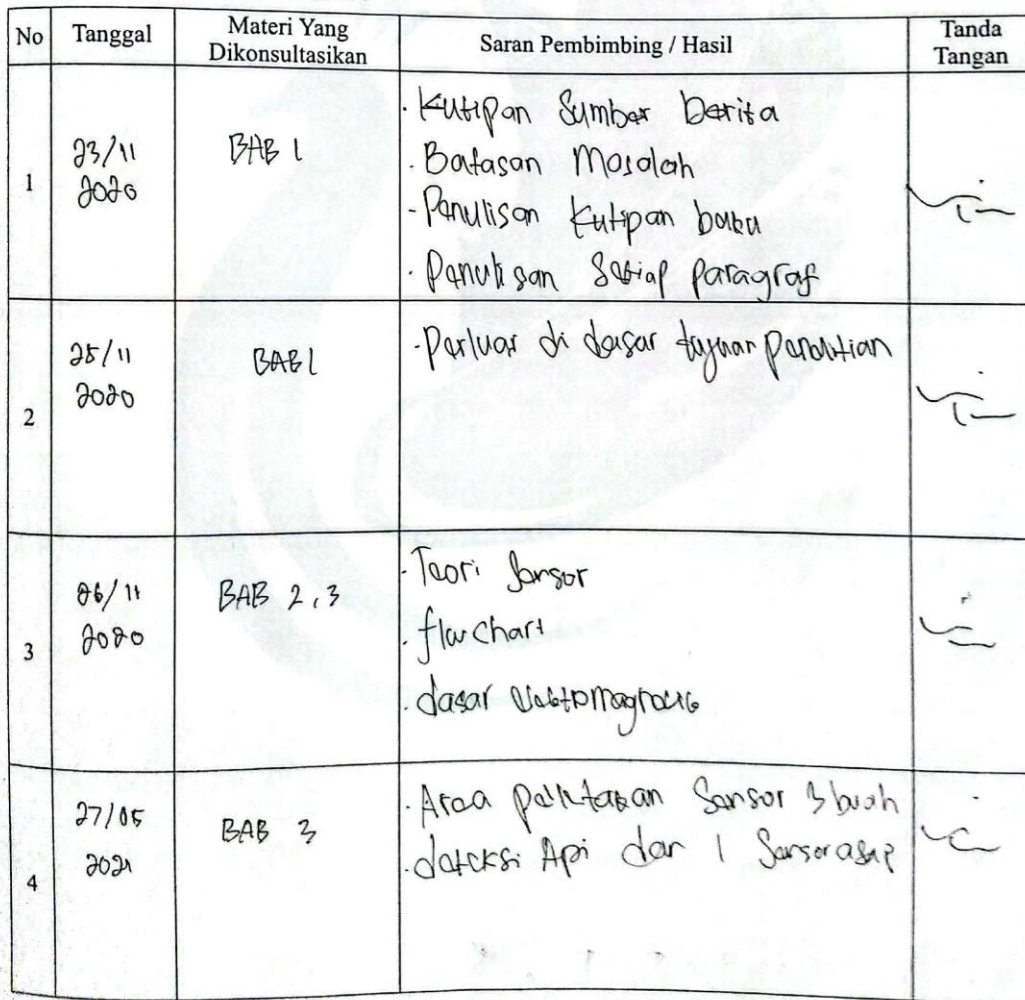 No Tanggal Materi Yang Dikonsultasikan Saran Pembimbing / Hasil Tanda Tangan
1 23/11 2020 BAB 1
. Kutipan Sumber berita
. Batasan Masalah
- Penulisan kutipan buku
. Penulisan Setiap paragraf
2 25/11 2020 BAB 1
- di dasar tujuan penelitian
3 26/11 2020 BAB 2,3
- Teori Sensor
. flowchart
. dasar
4 27/05 2021 BAB 3
. Area Sensor 3 buah
. deteksi Api dan 1 Sensor asap